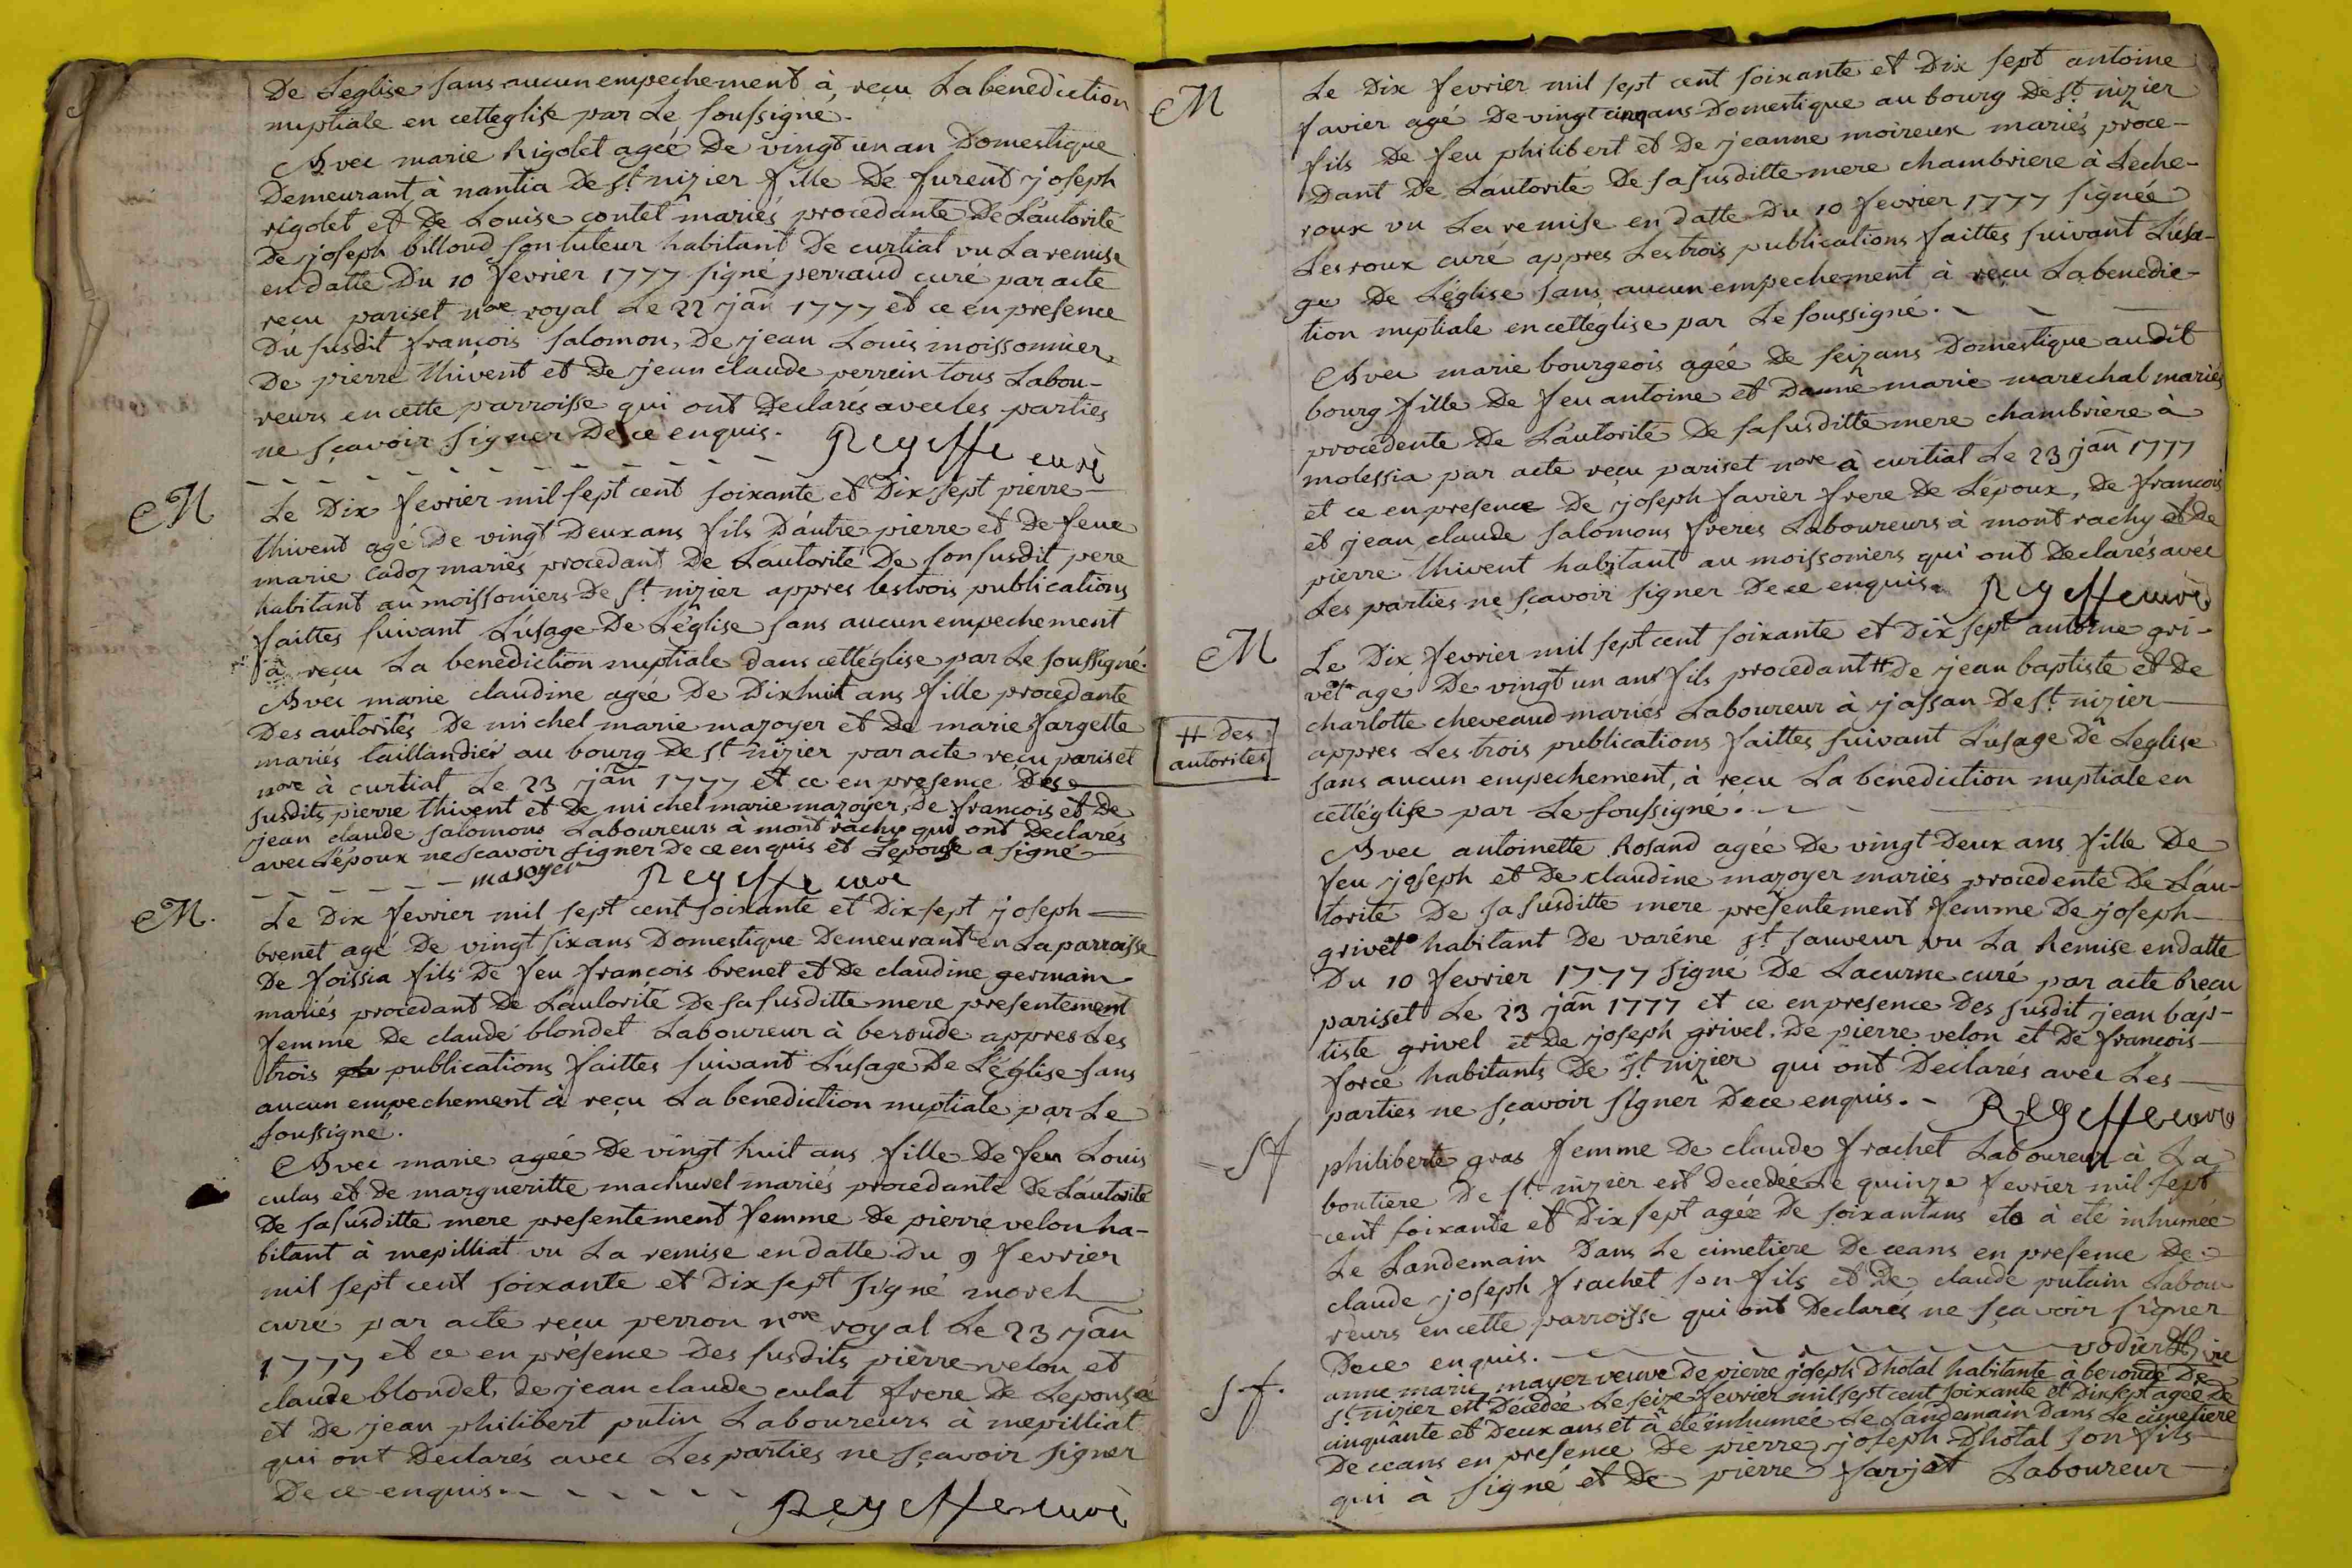 De Leglise sans aucun empechement à reçu La benediction
nuptiale en cetteglise par Le soussigné.
Avec marie Rigolet agée De vingt un an Domestique
Demeurant à nantia De st nizier fille De furent joseph
rigolet et De Louise contet mariés procedante De L'autorité
De joseph billoud son tuteur habitant De curtiat vu La remise
en datte Du 10 fevrier 1777 signé perraud curé par acte
reçu pariset nore royal Le 22 jan 1777 et ce en presence
Du susdit françois salomon, De jean Louis moissonnier,
De pierre thivent et De jean claude perrein tous Labou-
reurs en cette parroisse qui ont Declarés avec les parties
ne sçavoir signer De ce enquis. Reyeffe curé
M
Le Dix fevrier mil sept cent soixante et Dix sept pierre
thivent agé De vingt Deux ans fils D'autre pierre et De feue
marie Cadoz mariés procedant De L'autorité De son susdit pere
habitant au moissoniers De st nizier appres les trois publications
faittes suivant L'usage De L'église sans aucun empechement
à reçu La benediction nuptiale dans cettéglise par Le soussigné.
Avec marie claudine agée De Dixhuit ans fille procedante
Des autorités De michel marie mazoyer et De marie fargette
mariés taillandier au bourg De st nizier par acte reçu pariset
nore à curtiat Le 23 jan 1777 et ce en presence Des
susdits pierre thivent et De michel marie mazoyer, De francois et De
jean claude salomons Laboureurs à mont rachy qui ont Declarés
avec L'époux ne scavoir signer De ce en quis et L'epouse a signé
masoyer Reyeffe curé
M.
Le Dix fevrier mil sept cent soixante et Dix sept joseph
brenet agé De vingt six ans Domestique Demeurant en La parroisse
De foissia fils De feu francois brenet et De claudine germain
mariés procedant De L'autorité De sa susditte mere presentement
femme De claude blondet Laboureur à beroude appres Les
trois publications faittes suivant L'usage De L'église sans
aucun empechement à reçu La benediction nuptiale par Le
soussigné.
Avec marie agée De vingt huit ans fille De feu Louis
culas et De margueritte machurel mariés procedante De L'autorité
De sa susditte mere presentement femme De pierre velon ha-
bitant à mepilliat vu La remise en datte Du 9 fevrier
mil sept cent soixante et Dix sept signé morel
curé par acte reçu perron nore royal Le 23 jan
1777 et ce en présence Des susdits pierre velon et
claude blondet, de jean claude culat frere De Lepouse
et De jean philibert putin Laboureurs à mepilliat
qui ont Declarés avec Les parties ne sçavoir signer
De ce enquis. Reyeffe curé
M
Le Dix fevrier mil sept cent soixante et Dix sept antoine
favier agé De vingt cinq ans Domestique au bourg De st nizier
fils De feu philibert et De jeanne moireux mariés proce-
Dant De L'autorité De sa susditte mere chambriere à Leche-
roux vu La remise en datte Du 10 fevrier 1777 signée
Lesroux curé appres Les trois publications faittes suivant L'usa-
ge De L'église sans aucun empechement à reçu La benedic-
tion nuptiale en cetteglise par Le soussigné.
Avec marie bourgeois agée De seizans Domestique audit
bourg fille De feu antoine et D'anne marie marechal mariés
procedente De L'autorité De sa susditte mere chambriere à
molessia par acte reçu pariset nore à curtiat Le 23 jan 1777
et ce en presence De joseph favier frere De L'époux, De francois
et jean claude salomons freres Laboureurs à mont rachy et De
pierre thivent habitant au moissoniers qui ont Declarés avec
Les parties ne sçavoir signer De ce enquis. Reyeffe curé
M
Le Dix fevrier mil sept cent soixante et Dix sept antoine gri-
vet agé De vingt un ans fils procedant # De jean baptiste et De
charlotte cheveaud mariés Laboureur à jassan De st nizier
# des
autorites
appres Les trois publications faittes suivant L'usage De Leglise
sans aucun empechement, à reçu La benediction nuptiale en
cettéglise par Le soussigné.
Avec antoinette Rosand agée De vingt Deux ans fille De
feu joseph et De claudine mazoyer mariés procedente De L'au-
torité De sa susditte mere presentement femme De joseph
grivet habitant De varéne st sauveur vu La Remise en datte
Du 10 fevrier 1777 signé De Lacurne curé par acte Recu
pariset Le 23 jan 1777 et ce en presence Des susdit jean bap-
tiste grivel et De joseph grivel. De pierre velon et De françois
forcé habitants De st nizier qui ont Declarés avec Les
parties ne sçavoir signer De ce enquis. Reyeffe curé
sf
philiberte gras femme De claude frachet Laboureur à La
boutiere De st nizier est Decedée Le quinze fevrier mil sept
cent soixante et Dix sept agée De soixantans et à eté inhumée
Le Landemain Dans Le cimetiere De ceans en presence De
claude joseph frachet son fils et De claude putain Labou
reurs en cette parroisse qui ont Declarés ne sçavoir signer
De ce enquis.
sf.
anne marie mayer veuve De pierre joseph Dhotal habitante à beronde De
st nizier est Decedée Le seize fevrier mil sept cent soixante et Dix sept agée De
cinquante et Deux ans et à été inhumée Le Landemain Dans Le cimetiere
De ceans en presence De pierre joseph Dhotal son fils
qui à signé et De pierre farjet Laboureur